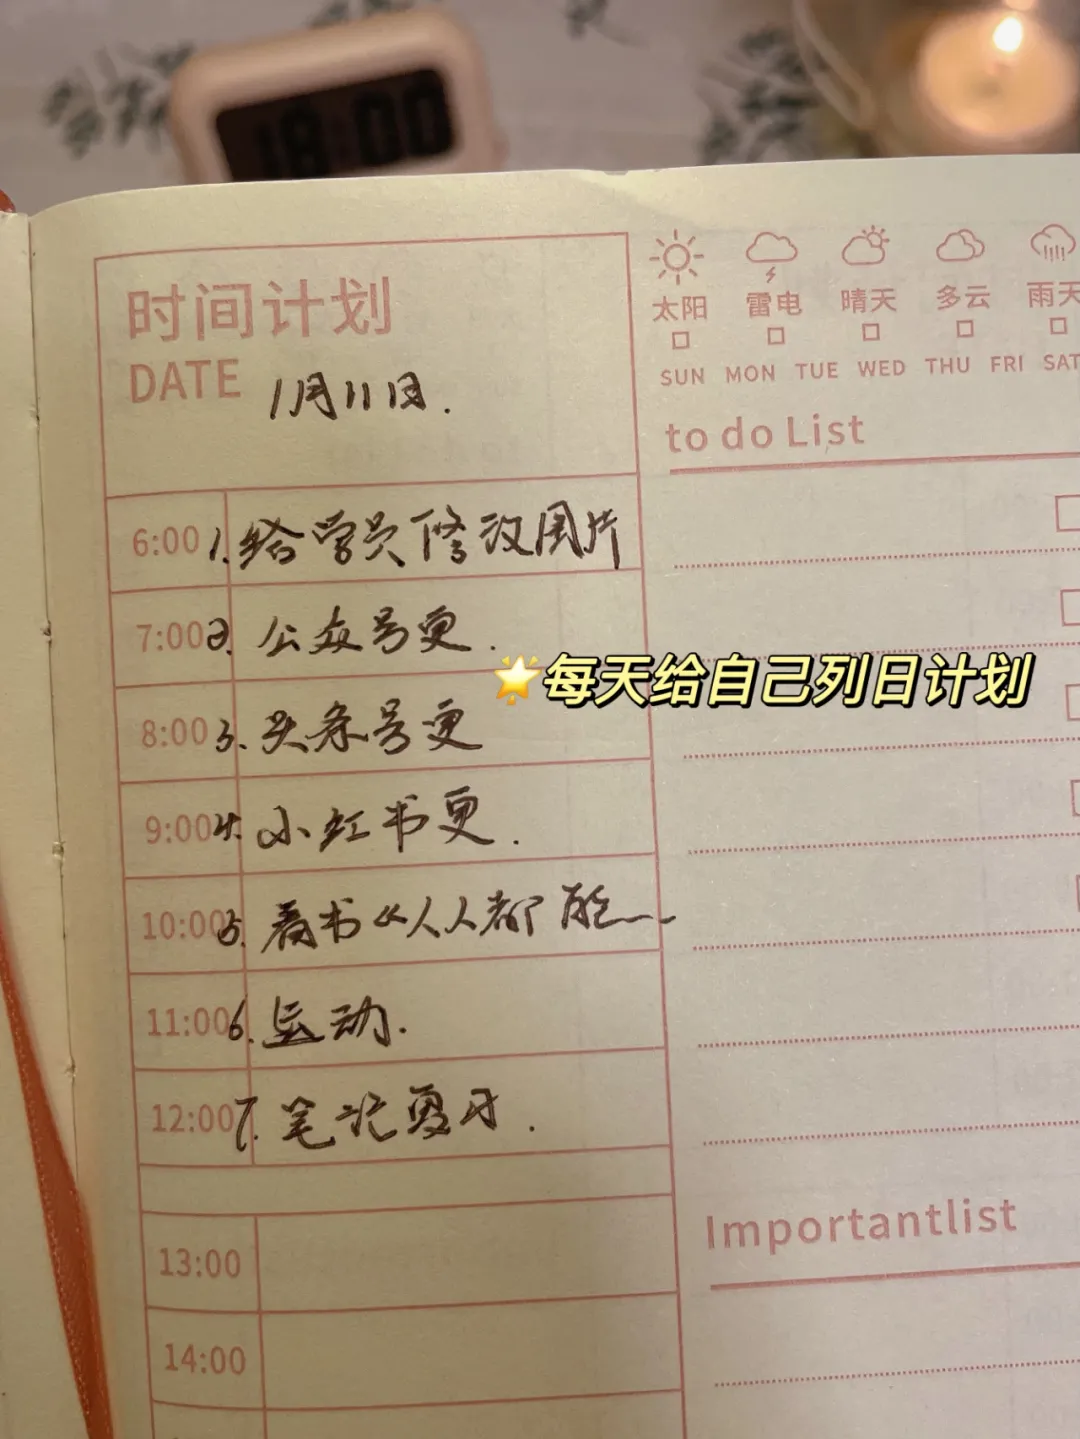 18:00
时间计划
DATE 1月11日.
太阳 雷电 晴天 多云 雨天
SUN MON TUE WED THU FRI SAT
to do List
6:00 1. 给学员修改图片
7:00 2. 公众号更.
⭐每天给自己列日计划
8:00 3. 头条号更
9:00 4. 小红书更.
10:00 5. 看书《人人都能——
11:00 6. 运动.
12:00 7. 笔记复习.
Importantlist
13:00
14:00